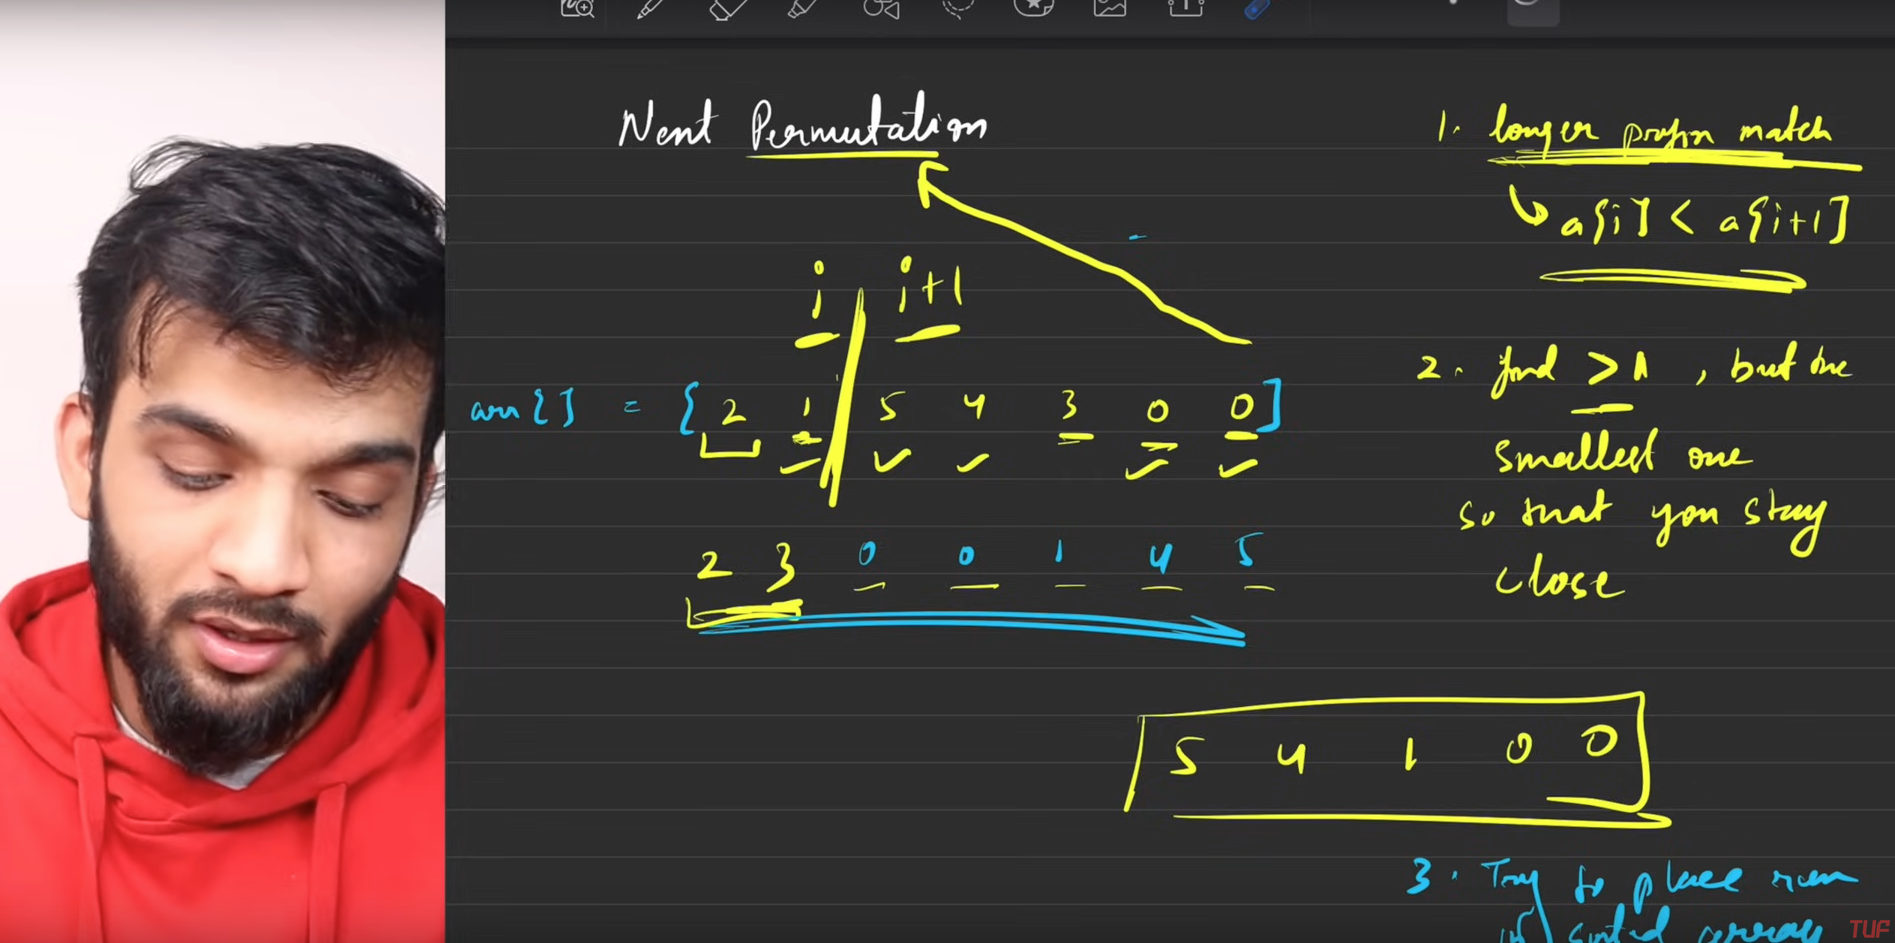 Next Permutation
i i+1
arr[] = [ 2 1 5 4 3 0 0 ]
2 3 0 0 1 4 5
5 4 1 0 0
1. longer prefix match
a[i] < a[i+1]
2. find > 1 , but the
smallest one
so that you stay
close
3. Try to place rem
in sorted array
TUF